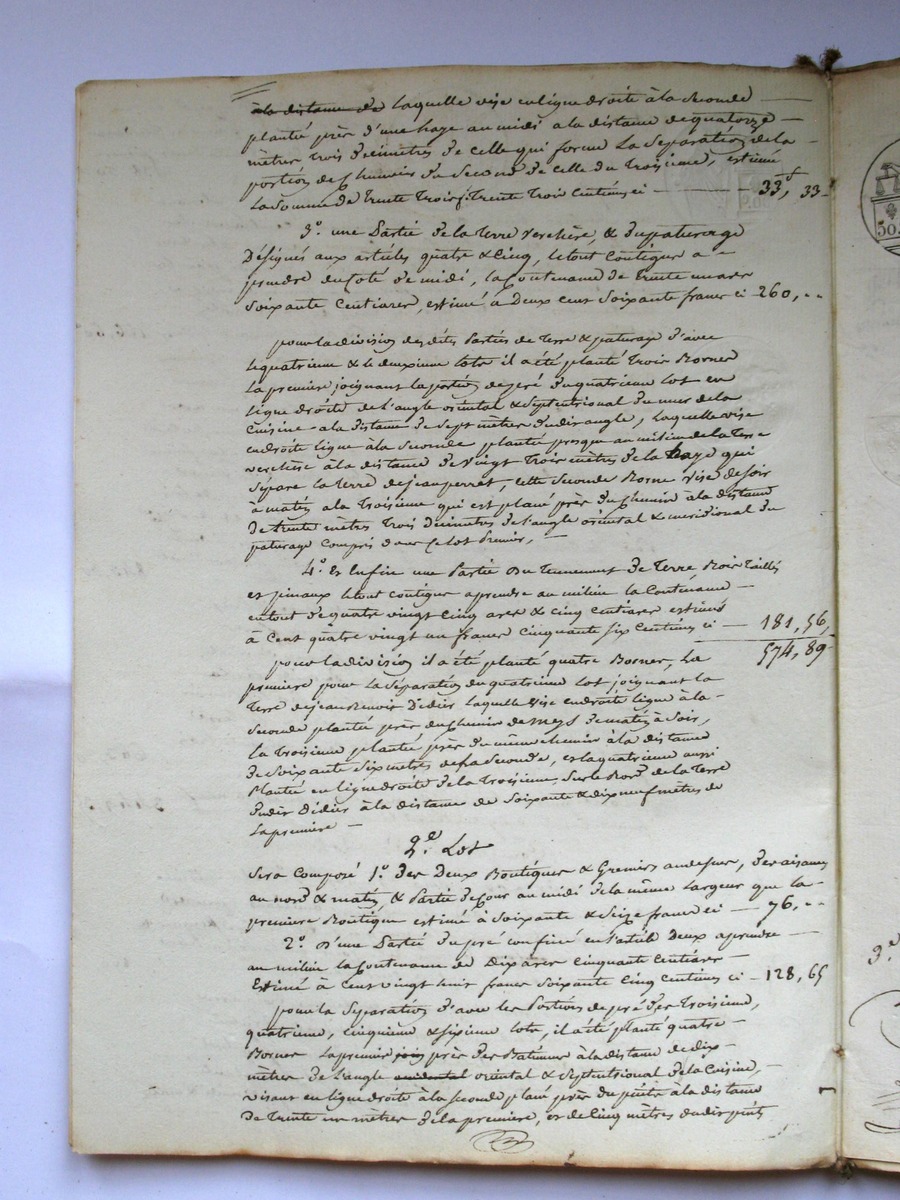 à la distance de laquelle vise en ligne droite à la seconde
plantée près d'une haye au midi à la distance de quatorze
mètres trois décimètres de celle qui forme la séparation de la
portion de du second de celle du troisième, estimé
la somme de trente trois f. trente trois centimes ci 33,f 33
3.o une Partie de la terre verchère, & du paturage
désignés aux articles quatre & cinq, le tout contigue a
prendre du coté de midi, la contenance de trente un ares
soixante centiares, estimé à deux cent soixante francs ci 260, ..
pour la division des dites Parties de terre & paturage d'avec
le quatrieme & le deuxieme lots il a été planté trois Bornes
la premiere joignant la portion de pré du quatrieme lot en
ligne droite de l'angle oriental & septentrional du mur de la
cuisine à la distance de sept mètres du dit angle, laquelle vise
en droite ligne à la seconde plantée presque au milieu de la terre
verchère à la distance de vingt trois mètres de la haye qui
sépare la terre de jean perret, cette seconde Borne vise de soir
à matin à la troisieme qui est planté près du chemin à la distance
de trente mètres trois décimètres de l'angle oriental & méridional du
paturage compris dans ce lot Premier,
4.o Et Enfin une Partie du tenement de terre Bois taillis
et pinaux le tout contigue a prendre au milieu la contenance
en tout de quatre vingt cinq ares & cinq centiares estimés
à Cent quatre vingt un francs cinquante six centimes ci 181, 56,
574, 89
pour la division il a été planté quatre Bornes, La
premiere pour la séparation du quatrieme lot joignant la
terre de jean Benoit Didier laquelle vise en droite ligne à la
seconde plantée près du chemin de de matin à soir,
la troisieme plantée près du même chemin à la distance
de soixante six mètres de sa seconde, et la quatrieme aussi
plantée en ligne droite de la troisieme sur le Bord de la terre
du dit Didier à la distance de soixante & dix neuf mètres de
la premiere
2.e Lot
Sera Composé 1.o des Deux Boutiques & Greniers au dessus, des aisances
au nord & matin, & Partie de cour au midi de la même largeur que la
premiere Boutique estimé à soixante & seize francs ci 76, ..
2.o d'une Partie du pré confiné en l'article Deux a prendre
au milieu la contenance de Dix ares cinquante centiares
Estimé à Cent vingt huit francs soixante cinq centimes ci 128, 65
pour la séparation d'avec les Portions de pré des troisieme,
quatrieme, cinquieme & sixieme lots, il a été planté quatre
Bornes la premiere join près des Batiments à la distance de dix
mètres de l'angle occidental oriental & septentrional de la Cuisine,
visant en ligne droite à la seconde planté près du puits à la distance
de trente un mètres de la premiere, et de cinq mètres du dit puits
50.
3.e